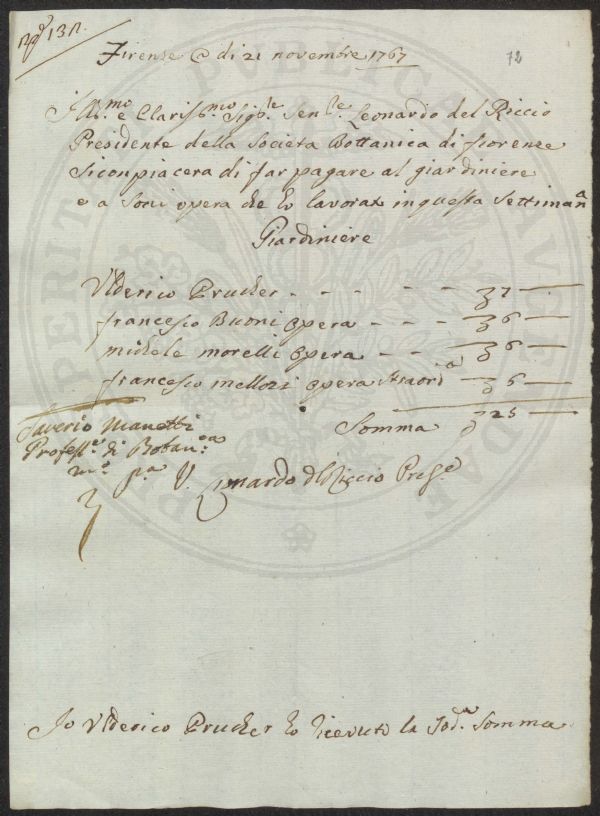 Firenze @ di 21 novembre 1767
72
Ill.mo e Clariss.mo Sig.le Sen.le Leonardo del Riccio
Presidente della Societa Bottanica di fiorenze
Siconpiacera di far pagare al giardiniere
e a Soui opera che ho lavorat inquesta Settimana
Giardiniere
Vlderico Prucker - - - - - - 7 —
francesco Buoni opera - - - 6 —
michele morelli opera - - - 6 —
francesco mellozi opera straord.a 6 —
Somma 25 —
Saverio Manetti
Profess.e di Botan.ca
m.o p.a
V. Lionardo del Riccio Pres.e
Io Vlderico Prucker ho riceuuto la Sod.a Somma